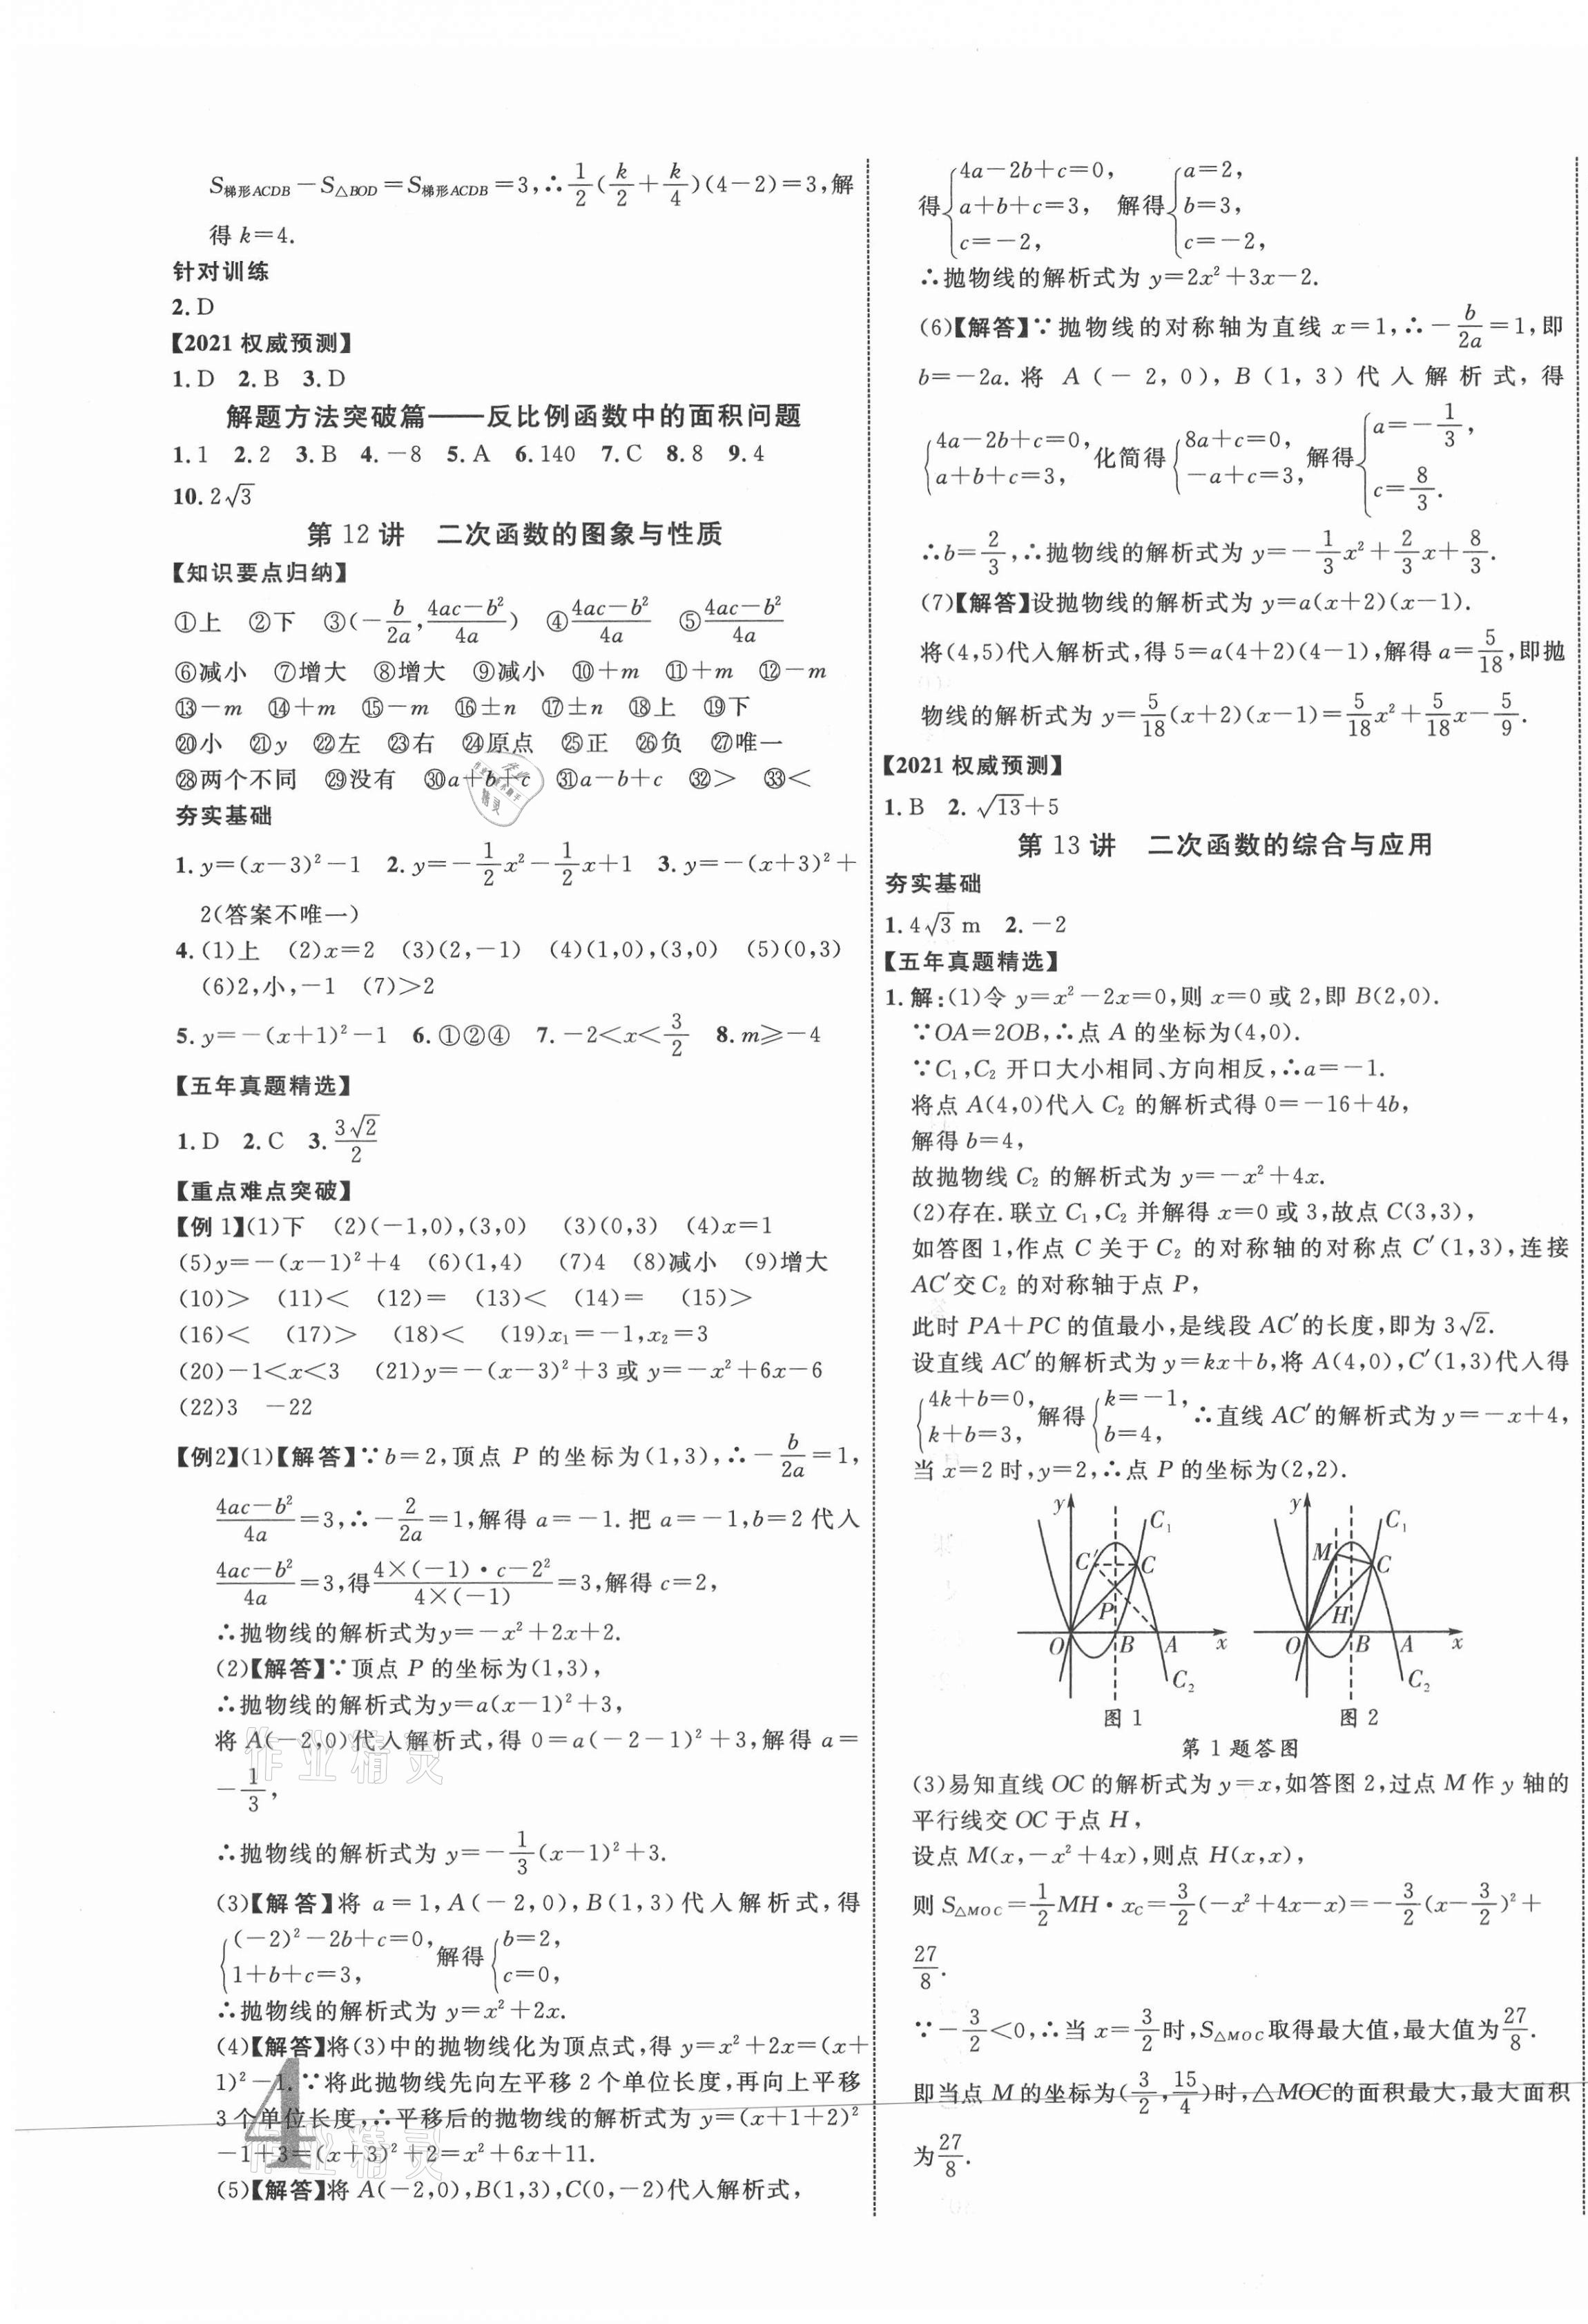 S梯形ACDB－S△BOD＝S梯形ACDB＝3,∴1/2(k/2＋k/4)(4－2)＝3,解
得 k＝4.
针对训练
2. D
【2021 权威预测】
1. D 2. B 3. D
解题方法突破篇——反比例函数中的面积问题
1. 1 2. 2 3. B 4. －8 5. A 6. 140 7. C 8. 8 9. 4
10. 2√3
第 12 讲 二次函数的图象与性质
【知识要点归纳】
①上 ②下 ③(－b/2a,(4ac－b²)/4a) ④(4ac－b²)/4a ⑤(4ac－b²)/4a
⑥减小 ⑦增大 ⑧增大 ⑨减小 ⑩＋m ⑪＋m ⑫－m
⑬－m ⑭＋m ⑮－m ⑯±n ⑰±n ⑱上 ⑲下
⑳小 ㉑y ㉒左 ㉓右 ㉔原点 ㉕正 ㉖负 ㉗唯一
㉘两个不同 ㉙没有 ㉚a＋b＋c ㉛a－b＋c ㉜＞ ㉝＜
夯实基础
1. y＝(x－3)²－1 2. y＝－1/2x²－1/2x＋1 3. y＝－(x＋3)²＋
2(答案不唯一)
4. (1)上 (2)x＝2 (3)(2,－1) (4)(1,0),(3,0) (5)(0,3)
(6)2,小,－1 (7)＞2
5. y＝－(x＋1)²－1 6. ①②④ 7. －2＜x＜3/2 8. m≥－4
【五年真题精选】
1. D 2. C 3. 3√2/2
【重点难点突破】
【例 1】(1)下 (2)(－1,0),(3,0) (3)(0,3) (4)x＝1
(5)y＝－(x－1)²＋4 (6)(1,4) (7)4 (8)减小 (9)增大
(10)＞ (11)＜ (12)＝ (13)＜ (14)＝ (15)＞
(16)＜ (17)＞ (18)＜ (19)x₁＝－1,x₂＝3
(20)－1＜x＜3 (21)y＝－(x－3)²＋3 或 y＝－x²＋6x－6
(22)3 －22
【例2】(1)【解答】∵b＝2,顶点 P 的坐标为(1,3),∴－b/2a＝1,
(4ac－b²)/4a＝3,∴－2/2a＝1,解得 a＝－1. 把 a＝－1,b＝2 代入
(4ac－b²)/4a＝3,得(4×(－1)·c－2²)/(4×(－1))＝3,解得 c＝2,
∴抛物线的解析式为y＝－x²＋2x＋2.
(2)【解答】∵顶点 P 的坐标为(1,3),
∴抛物线的解析式为y＝a(x－1)²＋3,
将 A(－2,0)代入解析式,得 0＝a(－2－1)²＋3,解得 a＝
－1/3,
∴抛物线的解析式为 y＝－1/3(x－1)²＋3.
(3)【解答】将 a＝1,A(－2,0),B(1,3)代入解析式,得
{(－2)²－2b＋c＝0, 1＋b＋c＝3, 解得{b＝2, c＝0,
∴抛物线的解析式为 y＝x²＋2x.
(4)【解答】将(3)中的抛物线化为顶点式,得 y＝x²＋2x＝(x＋
1)²－1. ∵将此抛物线先向左平移 2 个单位长度,再向上平移
3 个单位长度,∴平移后的抛物线的解析式为 y＝(x＋1＋2)²
－1＋3＝(x＋3)²＋2＝x²＋6x＋11.
(5)【解答】将 A(－2,0),B(1,3),C(0,－2)代入解析式,
4
得{4a－2b＋c＝0, a＋b＋c＝3, c＝－2, 解得{a＝2, b＝3, c＝－2,
∴抛物线的解析式为 y＝2x²＋3x－2.
(6)【解答】∵抛物线的对称轴为直线 x＝1,∴－b/2a＝1,即
b＝－2a. 将 A(－2,0),B(1,3)代入解析式,得
{4a－2b＋c＝0, a＋b＋c＝3, 化简得{8a＋c＝0, －a＋c＝3, 解得{a＝－1/3, c＝8/3.
∴b＝2/3,∴抛物线的解析式为 y＝－1/3x²＋2/3x＋8/3.
(7)【解答】设抛物线的解析式为 y＝a(x＋2)(x－1).
将(4,5)代入解析式,得 5＝a(4＋2)(4－1),解得 a＝5/18,即抛
物线的解析式为 y＝5/18(x＋2)(x－1)＝5/18x²＋5/18x－5/9.
【2021 权威预测】
1. B 2. √13＋5
第 13 讲 二次函数的综合与应用
夯实基础
1. 4√3 m 2. －2
【五年真题精选】
1. 解:(1)令 y＝x²－2x＝0,则 x＝0 或 2,即 B(2,0).
∵OA＝2OB,∴点 A 的坐标为(4,0).
∵C₁,C₂ 开口大小相同、方向相反,∴a＝－1.
将点 A(4,0)代入 C₂ 的解析式得 0＝－16＋4b,
解得 b＝4,
故抛物线 C₂ 的解析式为 y＝－x²＋4x.
(2)存在. 联立 C₁,C₂ 并解得 x＝0 或 3,故点 C(3,3),
如答图 1,作点 C 关于 C₂ 的对称轴的对称点 C′(1,3),连接
AC′交 C₂ 的对称轴于点 P,
此时 PA＋PC 的值最小,是线段 AC′的长度,即为 3√2.
设直线 AC′的解析式为 y＝kx＋b,将 A(4,0),C′(1,3)代入得
{4k＋b＝0, k＋b＝3, 解得{k＝－1, b＝4, ∴直线 AC′的解析式为 y＝－x＋4,
当 x＝2 时,y＝2,∴点 P 的坐标为(2,2).
y C₁ C′ C P O B A x C₂
图 1
y C₁ M C H O B A x C₂
图 2
第 1 题答图
(3)易知直线 OC 的解析式为 y＝x,如答图 2,过点 M 作 y 轴的
平行线交 OC 于点 H,
设点 M(x,－x²＋4x),则点 H(x,x),
则 S△MOC＝1/2MH·xC＝3/2(－x²＋4x－x)＝－3/2(x－3/2)²＋
27/8.
∵－3/2＜0,∴当 x＝3/2时,S△MOC取得最大值,最大值为27/8.
即当点 M 的坐标为(3/2,15/4)时,△MOC的面积最大,最大面积
为27/8.
作业精灵
作业精灵